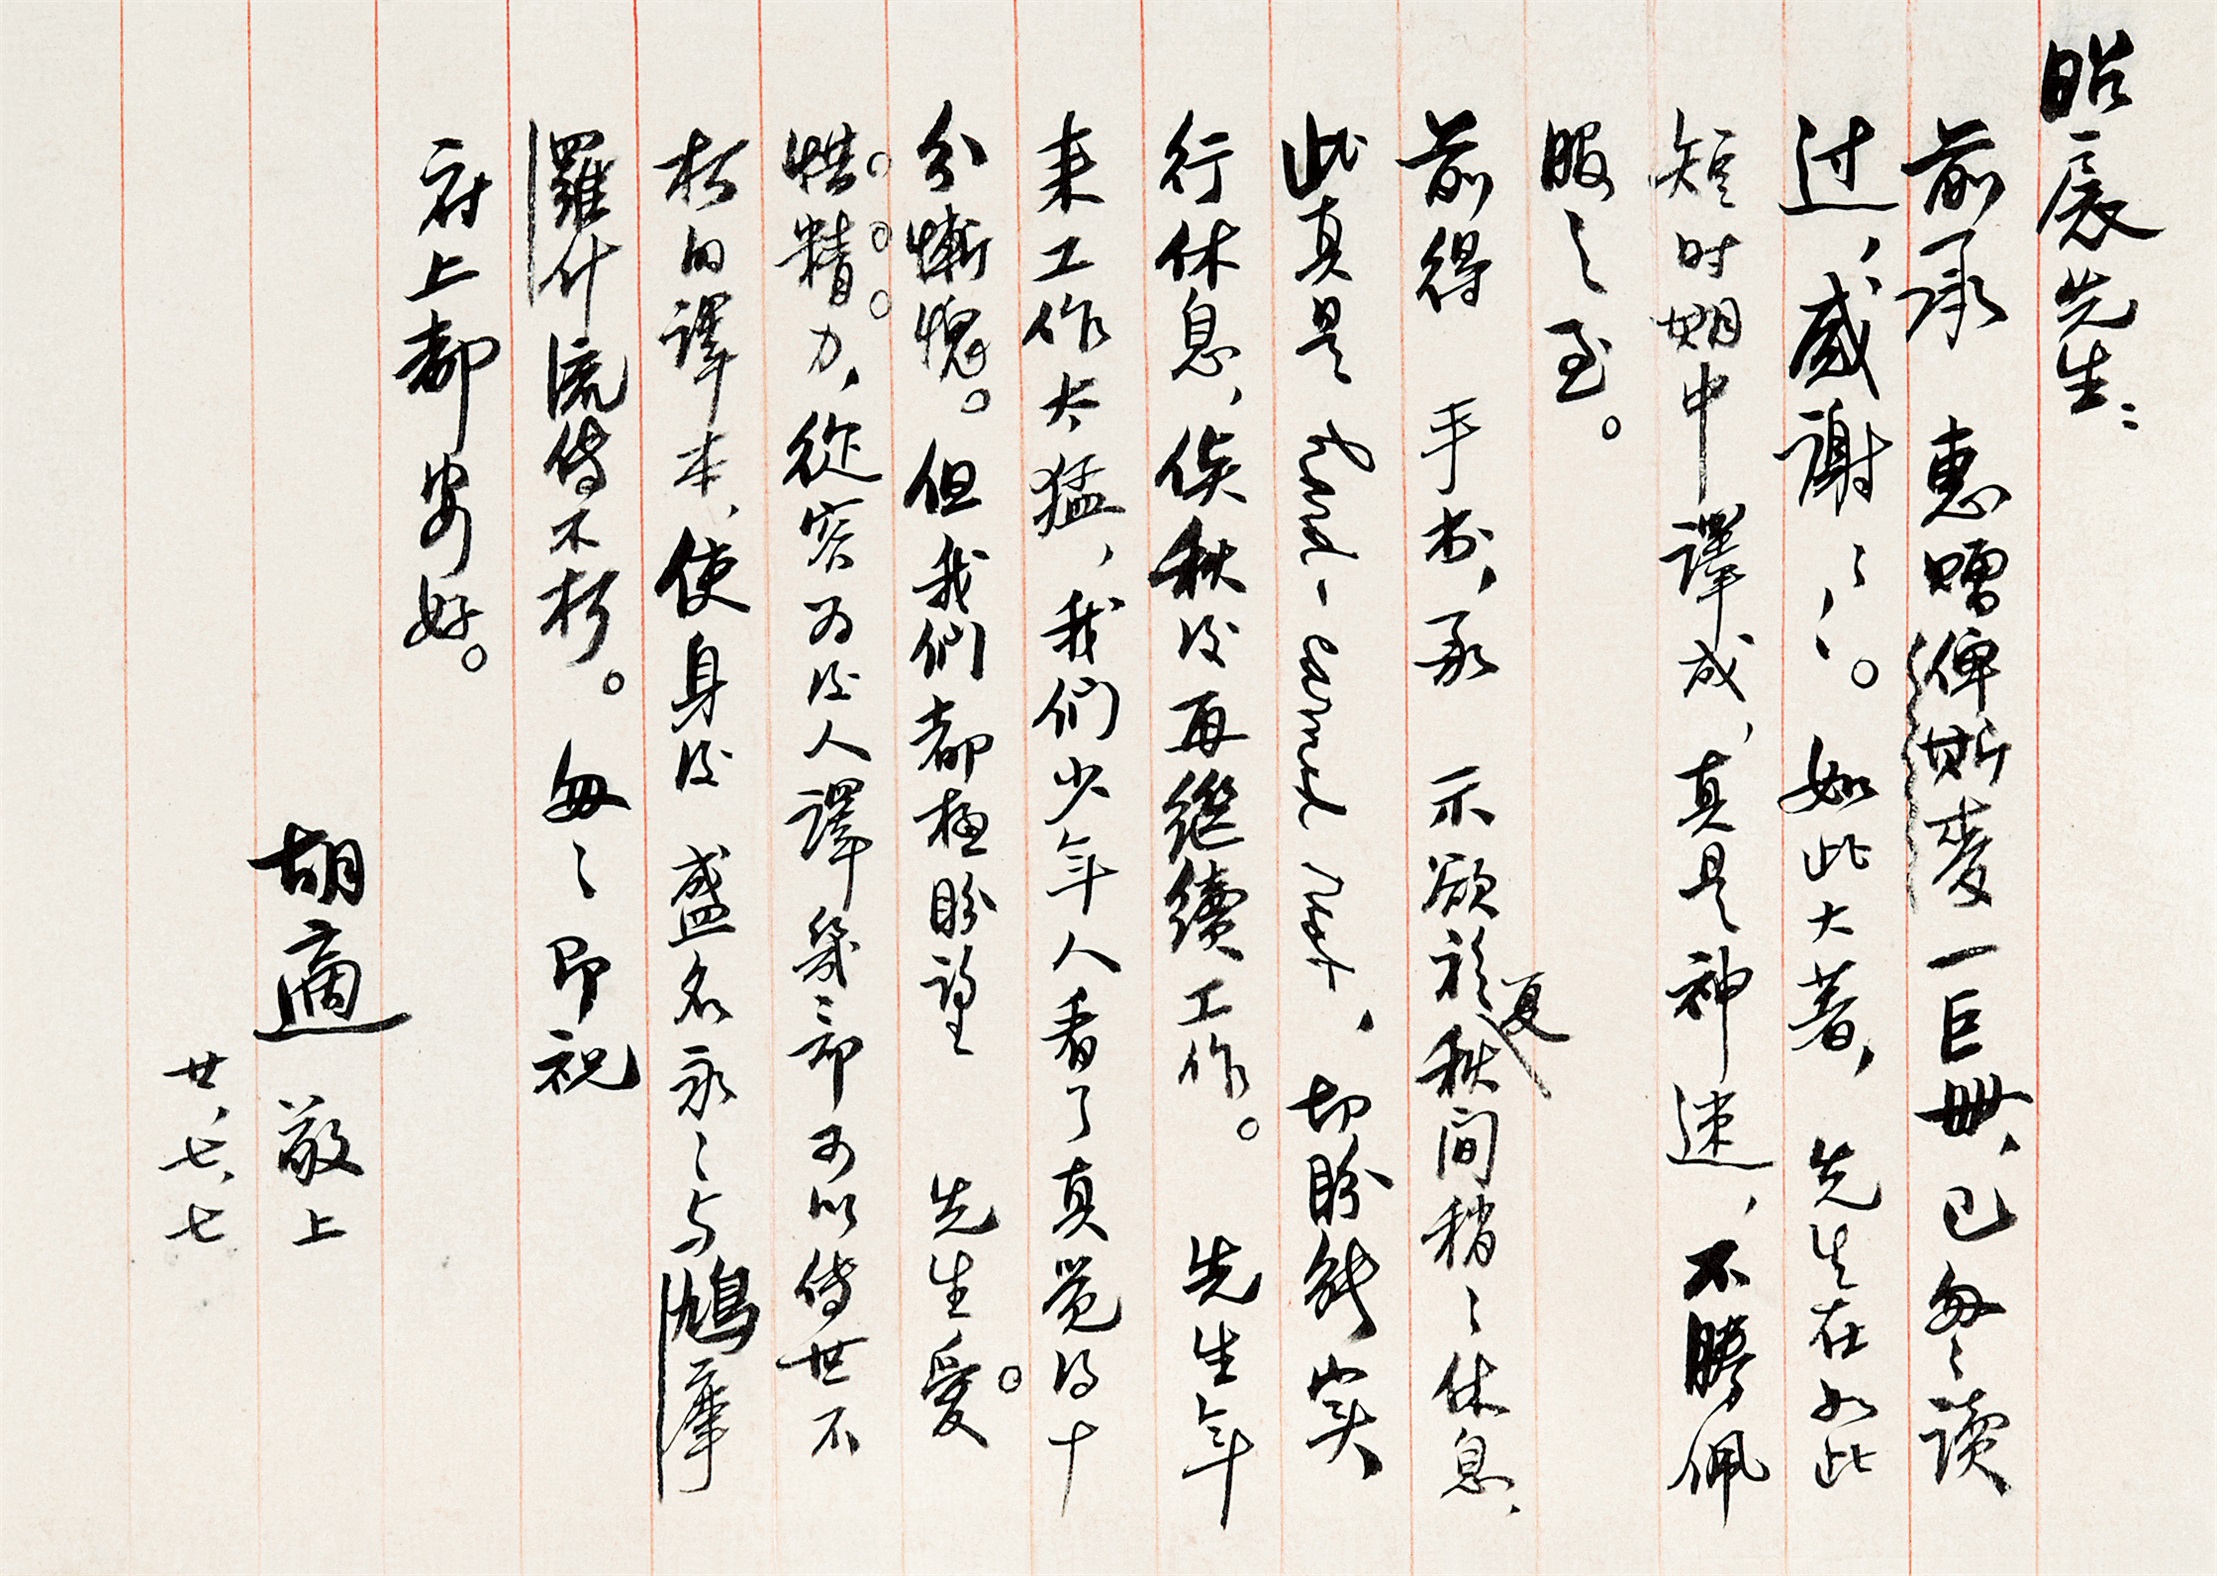 昭扆先生：
前承　惠贈俾斯麥一巨冊，已匆〻讀
过，感谢〻〻。如此大著，先生在如此
短时期中譯成，真是神速，不勝佩
服之至。
前得　手书，承　示欲於夏间稍〻休息，
此真是 hard-earned rest，切盼能实
行休息，俟秋后再继續工作。先生年
来工作太猛，我们少年人看了真觉得十
分慚愧。但我們都極盼望　先生愛
惜精力，從容为后人譯幾部可以傳世不
朽的譯本，使身后　盛名永〻与鳩摩
羅什流傳不朽。匆〻即祝
府上都安好。
胡適　敬上
廿、七、七